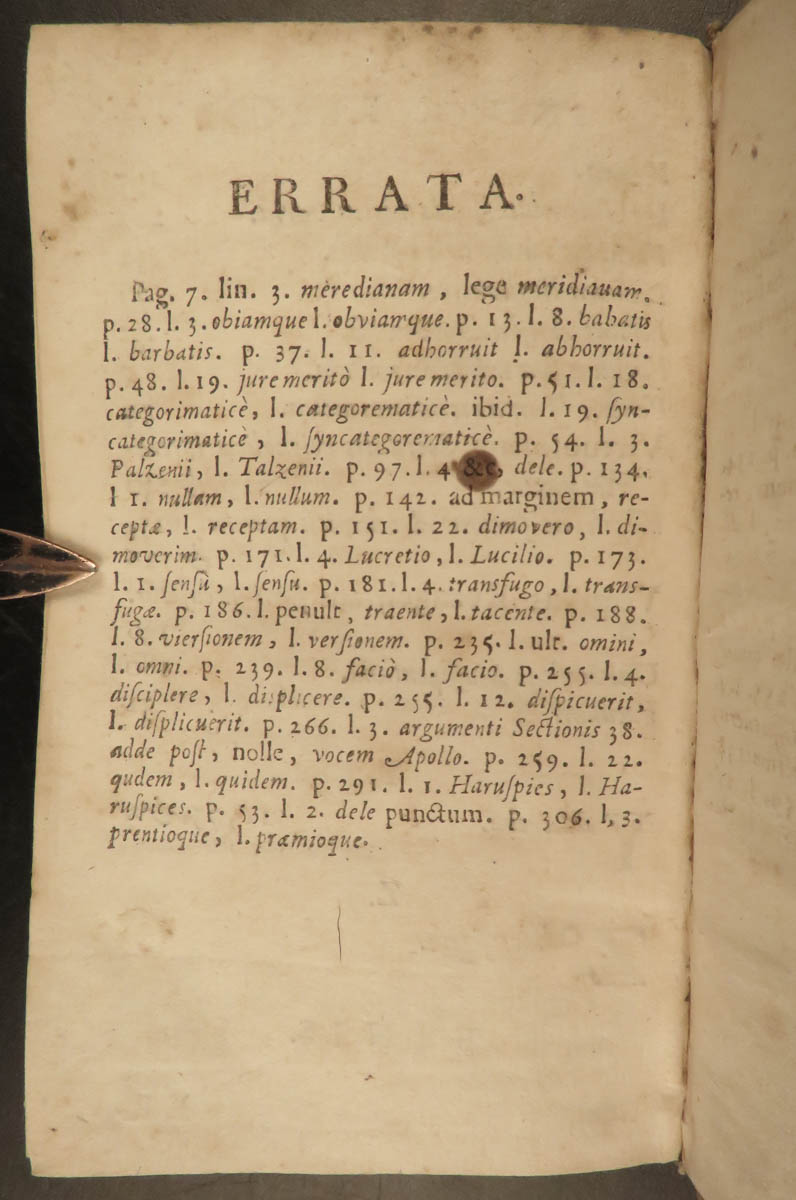 ERRATA.
Pag. 7. lin. 3. meredianam, lege meridiauam.
p. 28. l. 3. obiamque l. obviamque. p. 13. l. 8. babatis
l. barbatis. p. 37. l. 11. adhorruit l. abhorruit.
p. 48. l. 19. jure meritò l. jure merito. p. 51. l. 18.
categorimaticè, l. categorematicè. ibid. l. 19. ſyn-
categorimaticè, l. ſyncategorematicè. p. 54. l. 3.
Palzenii, l. Talzenii. p. 97. l. 4 &c, dele. p. 134.
l 1. nullam, l. nullum. p. 142. ad marginem, re-
ceptæ, l. receptam. p. 151. l. 22. dimovero, l. di-
moverim. p. 171. l. 4. Lucretio, l. Lucilio. p. 173.
l. 1. ſenſû, l. ſenſu. p. 181. l. 4. transfugo, l. trans-
fugæ. p. 186. l. penult, traente, l. tacente. p. 188.
l. 8. vierſionem, l. verſionem. p. 235. l. ult. omini,
l. omni. p. 239. l. 8. faciò, l. facio. p. 255. l. 4.
diſciplere, l. diſplicere. p. 255. l. 12. diſpicuerit,
l. diſplicuerit. p. 266. l. 3. argumenti Sectionis 38.
adde poſt, nolle, vocem Apollo. p. 259. l. 22.
qudem, l. quidem. p. 291. l. 1. Haruſpies, l. Ha-
ruſpices. p. 53. l. 2. dele punctum. p. 306. l, 3.
prentioque, l. præmioque.